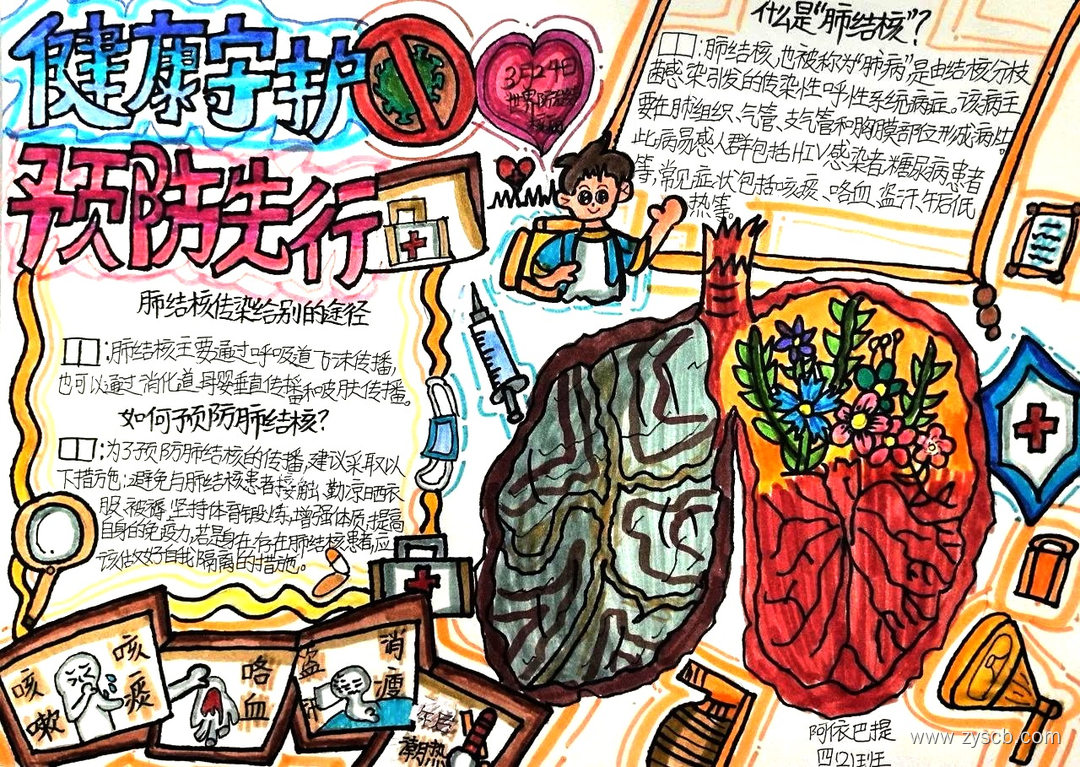 健康守护
预防先行
3月24日
世界防治结
什么是“肺结核”?
:肺结核,也被称为“肺病”,是由结核分枝
菌感染引发的传染性呼性系统病症。该病主
要在肺组织、气管、支气管和胸膜部位形成病灶。
此病易感人群包括HIV感染者糖尿病患者
等,常见症状包括咳痰、咯血、盗汗、午后低
热等。
肺结核传染给别的途径
:肺结核主要通过呼吸道飞沫传播,
也可以通过消化道、母婴垂直传播和皮肤传播。
如何予预防肺结核?
:为了预防肺结核的传播,建议采取以
下措施:避免与肺结核患者接触、勤凉晒衣
服、被褥、坚持体育锻炼,增强体质,提高
自身的免疫力,若是身在存在肺结核患者,应
该做好自我隔离的措施。
咳嗽
咳痰
咯血
盗
消瘦
潮热
阿依巴提
www.zyscb.com